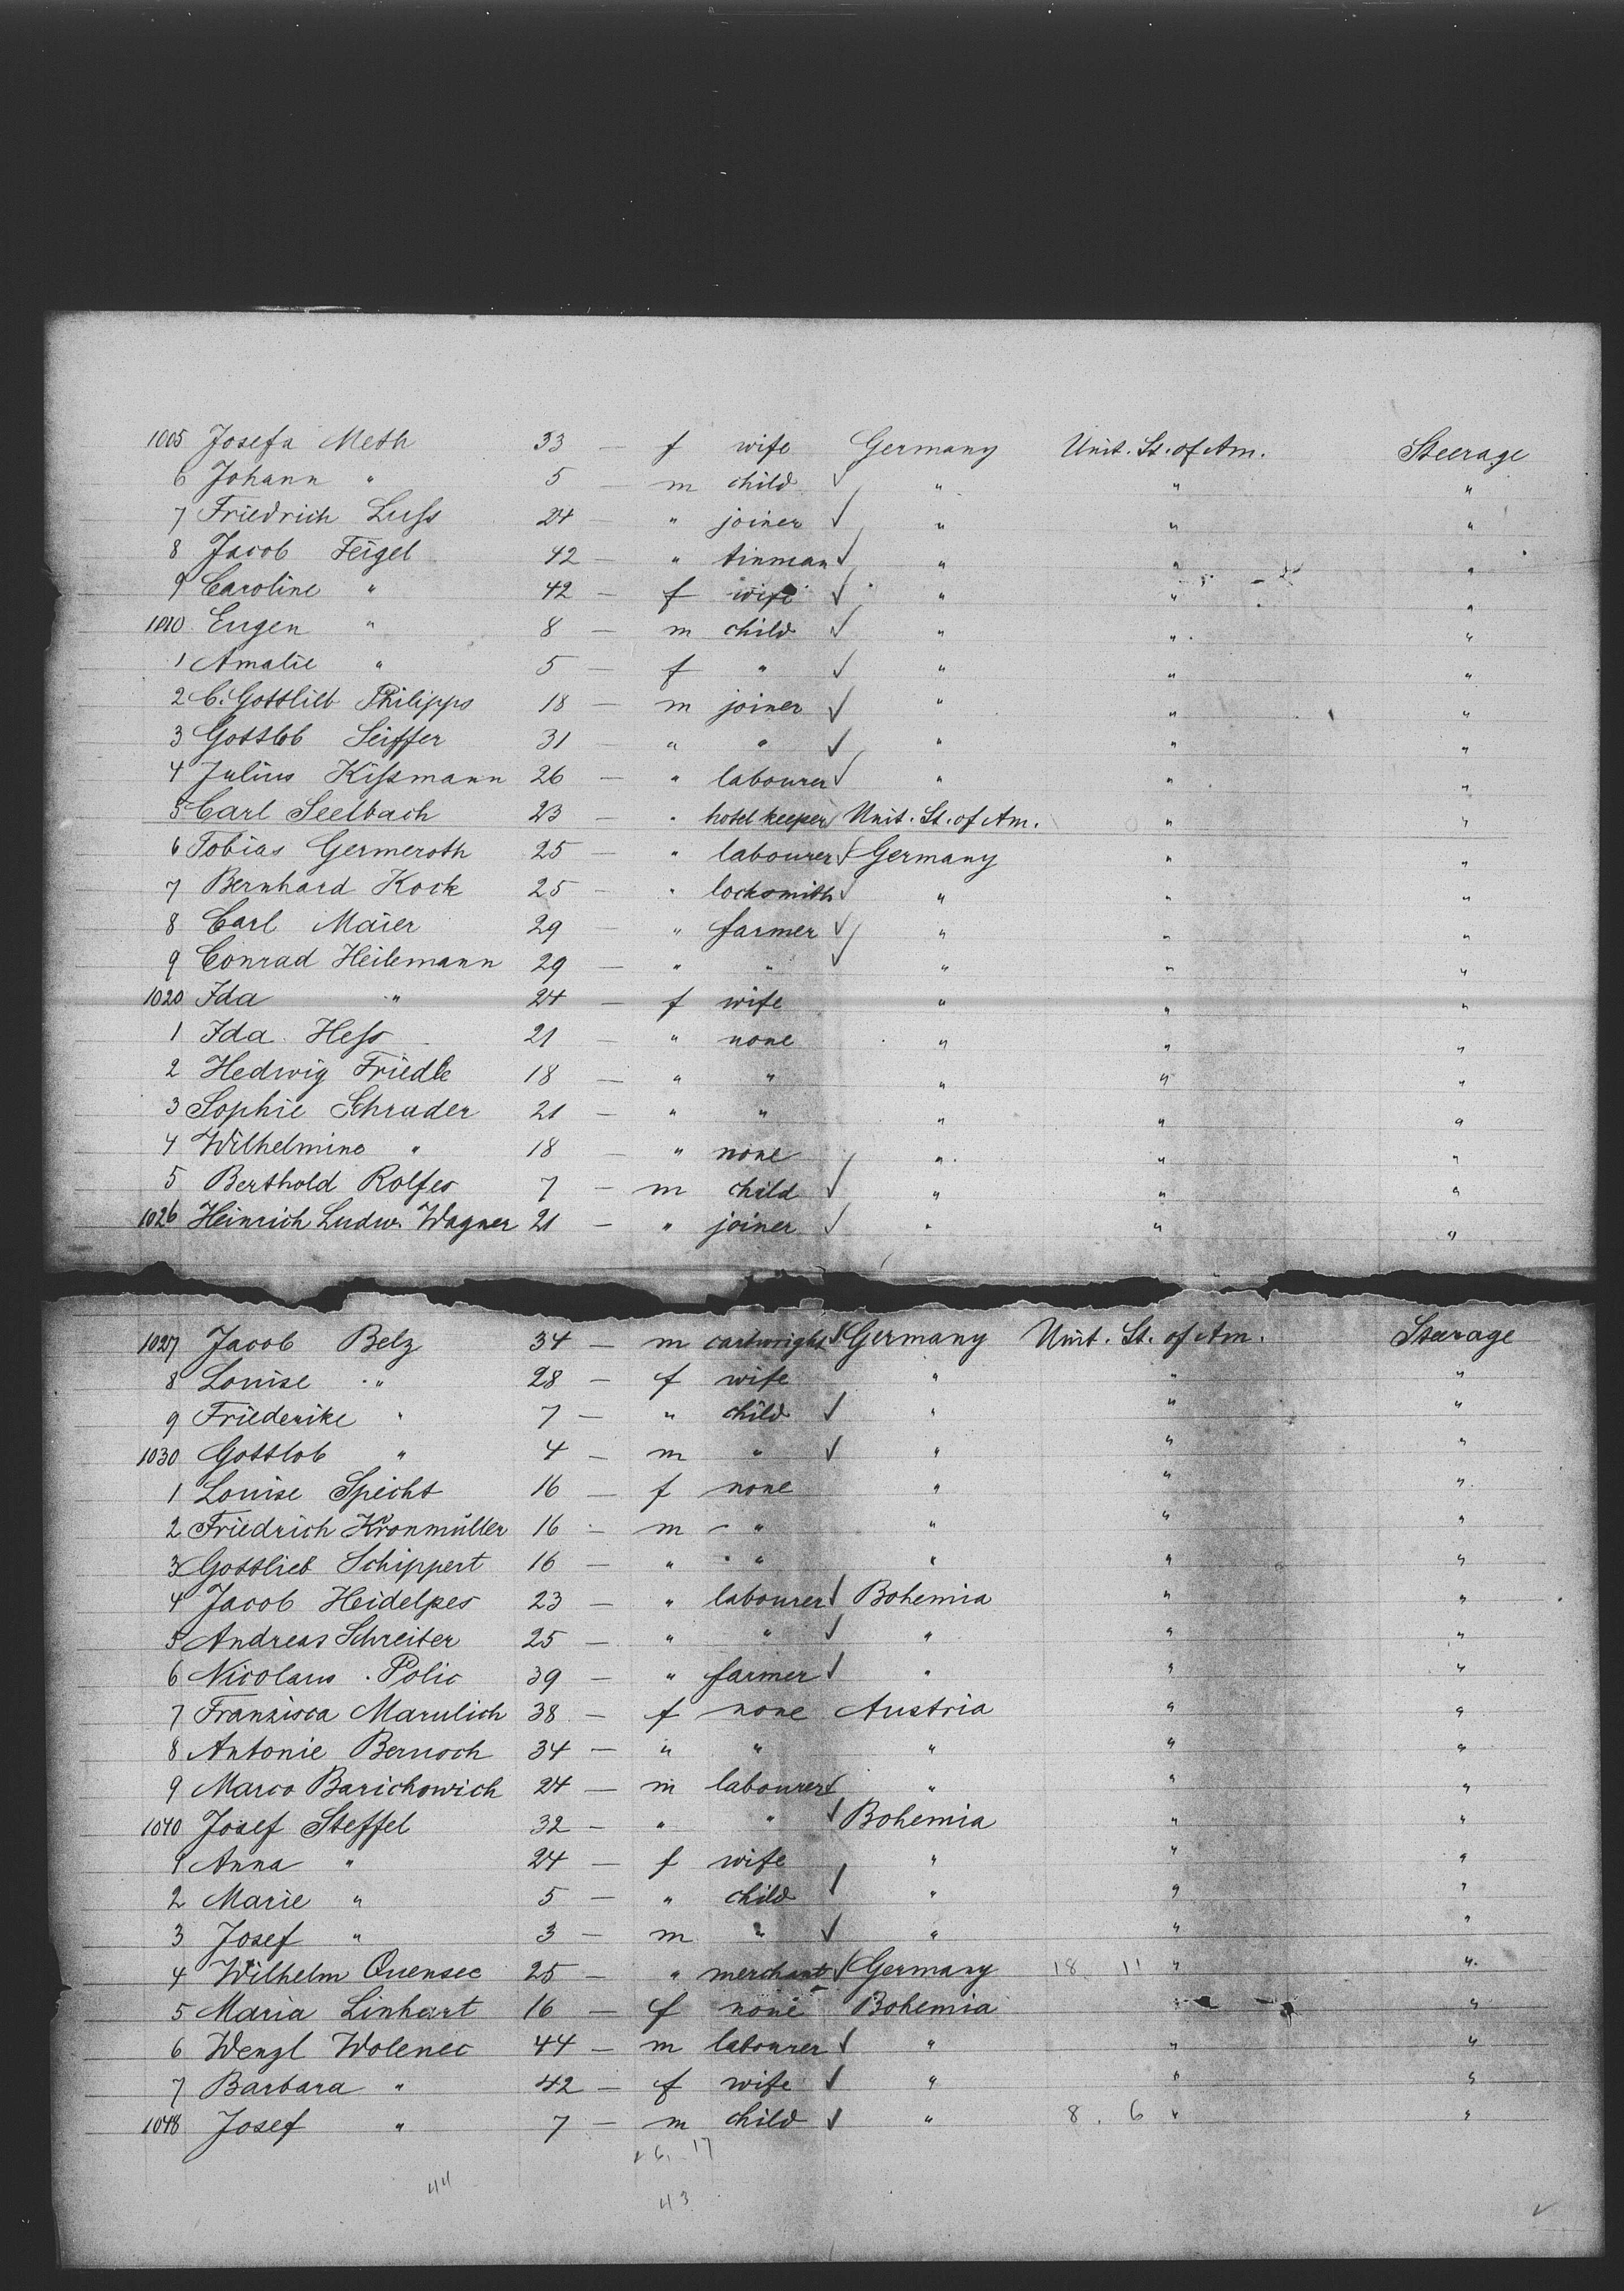 1005 Josefa Meth 33 — f wife Germany Unit. St. of Am. Steerage
6 Johann " 5 — m child √ " " "
7 Friedrich Luſs 24 — " joiner √ " " "
8 Jacob Feigel 42 — " tinman √ " " "
9 Caroline " 42 — f wife √ " " "
1010 Eugen " 8 — m child √ " " "
1 Amalie " 5 — f " √ " " "
2 C. Gottlieb Philipps 18 — m joiner √ " " "
3 Gottlob Seiffer 31 — " " √ " " "
4 Julius Kiſsmann 26 — " labourer √ " " "
5 Carl Seelbach 23 — " hotel keeper Unit. St. of Am. " "
6 Tobias Germeroth 25 — " labourer √ Germany " "
7 Bernhard Kock 25 — " locksmith √ " " "
8 Carl Maier 29 — " farmer √ " " "
9 Conrad Heilemann 29 — " " √ " " "
1020 Ida " 24 — f wife " " "
1 Ida Heſs 21 — " none " " "
2 Hedwig Friedle 18 — " " " " "
3 Sophie Schrader 21 — " " " " "
4 Wilhelmine " 18 — " none " " "
5 Berthold Rolfes 7 — m child √ " " "
1026 Heinrich Ludw. Wagner 21 — " joiner √ " " "
1027 Jacob Belz 34 — m cartwright √ Germany Unit. St. of Am. Steerage
8 Louise " 28 — f wife " " "
9 Friederike " 7 — " child √ " " "
1030 Gottlob " 4 — m " √ " " "
1 Louise Specht 16 — f none " " "
2 Friedrich Kronmüller 16 — m " " " "
3 Gottlieb Schippert 16 — " " " " "
4 Jacob Heidelpes 23 — " labourer √ Bohemia " "
5 Andreas Schreiber 25 — " " √ " " "
6 Nicolaus Polic 39 — " farmer √ " " "
7 Franzisca Marulich 38 — f none Austria " "
8 Antonie Bernoch 34 — " " " " "
9 Marco Barichowich 24 — m labourer √ " " "
1040 Josef Steffel 32 — " " √ Bohemia " "
1 Anna " 24 — f wife " " "
2 Marie " 5 — " child √ " " "
3 Josef " 3 — m " √ " " "
4 Wilhelm Quensec 25 — " merchant √ Germany 18 11 " "
5 Maria Linhart 16 — f none Bohemia " "
6 Wenzl Wolenec 44 — m labourer √ " " "
7 Barbara " 42 — f wife √ " " "
1048 Josef " 7 — m child √ " 8. 6 " "
6. 17
44
43